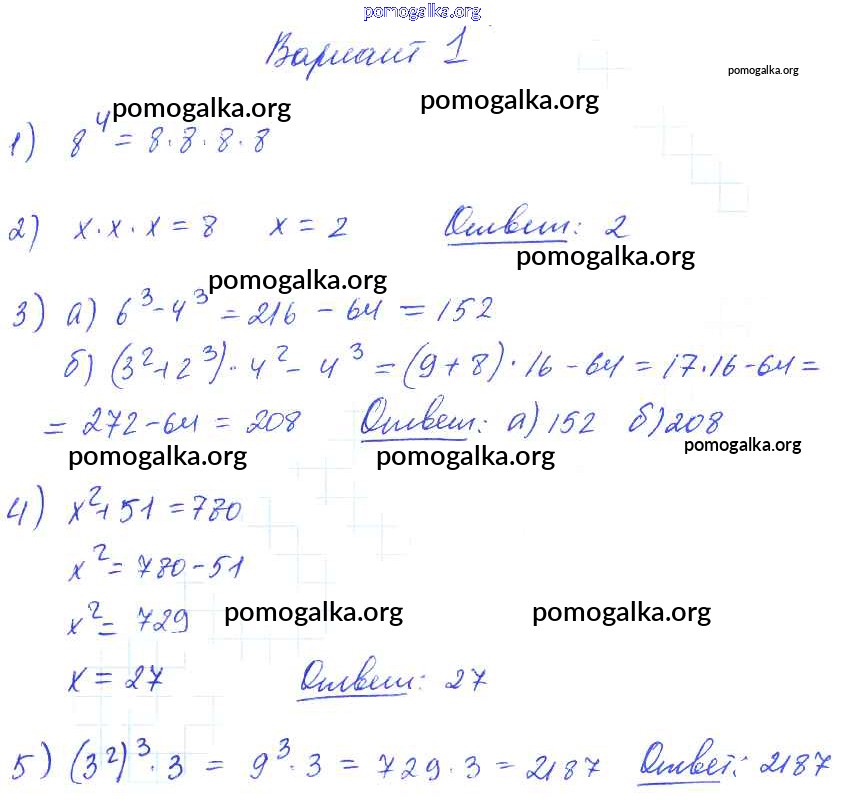 pomogalka.org
Вариант 1
pomogalka.org
pomogalka.org pomogalka.org
1) 8⁴ = 8·8·8·8
2) x·x·x = 8 x = 2 Ответ: 2
pomogalka.org
pomogalka.org
3) а) 6³-4³ = 216 - 64 = 152
б) (3²+2³)·4²-4³ = (9+8)·16-64 = 17·16-64 =
= 272-64 = 208 Ответ: а) 152 б) 208
pomogalka.org
pomogalka.org pomogalka.org
4) x²+51 = 780
x² = 780-51
x² = 729
pomogalka.org pomogalka.org
x = 27 Ответ: 27
5) (3²)³·3 = 9³·3 = 729·3 = 2187 Ответ: 2187